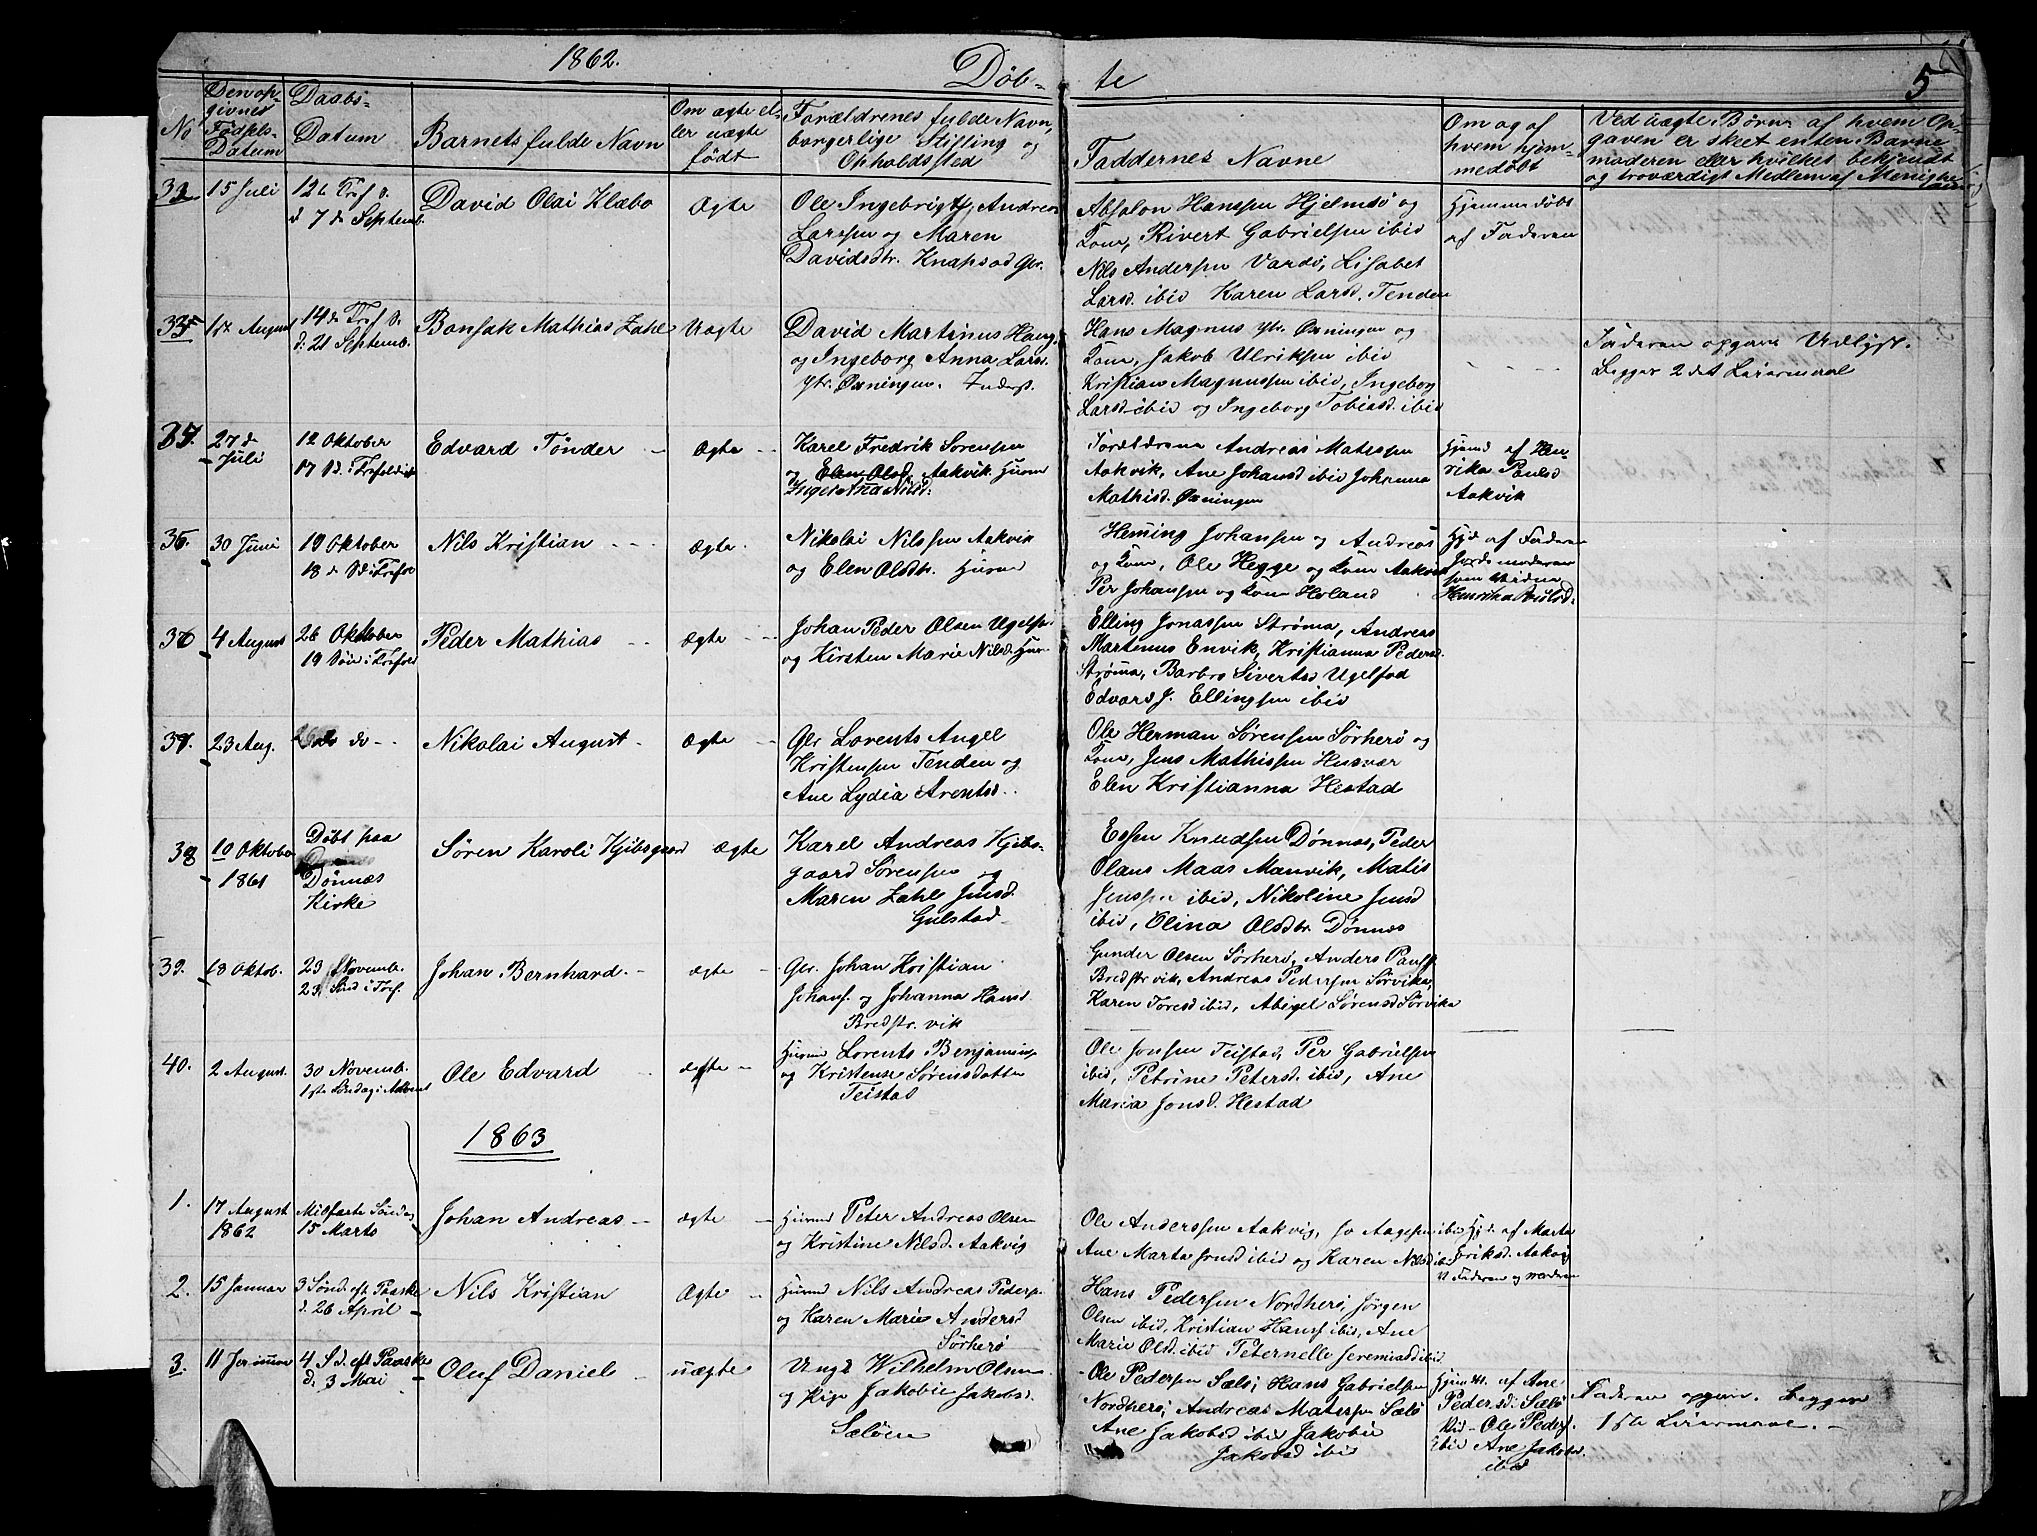 1862.
Døb-
te
5
No
Den op-
givnes
Fødsels-
Datum
Daabs-
Datum
Barnets fulde Navn
Om ægte el-
ler uægte
født
Forældrenes fulde Navn,
borgerlige Stilling og
Opholdssted
Faddernes Navne
Om og af
hvem hjem-
medøbt
Ved uægte Børn af hvem Op-
gaven er skeet enten Barne
moderen eller hvilket bekjendt
og troværdigt Medlem af Menighe
15 Juli
12 Tref S.
d 7 de Septemb.
David Olai Klæbo
Ægte
Ole Ingebrigtf, Andreas
Larssen og Maren
Davidsdtr. Knapsad Gbr.
Absalon Hanssen Hjelmsø og
Kone, Rivert Gabrielsen ibid
Nils Andersen Vardø, Lisabet
Larsd. ibid Karen Larsd. Tenden
Hjemmedøbt
af Faderen
1st August
14 de Tref S.
d. 21 Septemb.
Bonsak Mathias Zahl
Uægte
David Martinus Hang.
og Ingeborg Anna Lars.
ytr. Øxningen. Inderst.
Hans Magnus ytr. Øxningen og
Kone, Jakob Ulriksen ibid
Kristian Magnussen ibid, Ingeborg
Larsd ibid og Ingeborg Tobiasd. ibid
Faderen opgives Udlyst.
Begges 2det Leiermaal
27 de
Juli
12 Oktober
17 S. i Trefoldigh
Edvard Tønder
Ægte
Karel Fredrik Sørensen
og Elen Olsd. Aakvik Huusm
Inger Nna Nilsd.
Forældrene Andreas Matessen
Aakvik, Ane Johansd ibid Johanna
Mathisd. Øxningen
Hjemd af Hen
rika Paulsd
Aakvik
30 Juni
19 Oktober
18 de S. i Trefold
Nils Kristian
ægte.
Nikolai Nilssen Aakvik
og Elen Olsdtr. Huusm
Heming Johansen og Andreas
og Kone, Ole Hegge og Kone Aakvik
Per Johansen og Kone Høland
Hjd af Faderen
Jordemoderen
som Vidne
Henrika Paulsd.
36
4 August
26 Oktober
19 Søn i Trefold
Peder Mathias
ægte
Johan Peder Olsen Ugelsf.
og Kirsten Marie Nilsd. Huus
Elling Jonassen Strøma, Andreas
Martenus Envik, Kristianna Pedersd.
Strøma, Barbro Sivertsd Ugelsfod
Edvard J. Ellingsen ibid
37.
23 Aug.
do do
Nikolai August
Ægte
Gbr Lorents Angel
Kristensen Tenden og
Ane Lydia Arentsd.
Ole Herman Sørensen Sørherø og
Kone, Jens Mathissen Husvær
Elen Kristianna Hestad
38
10 Oktober
1861
Døbt paa
Dønnæs
Kirke
Søren Karoli Hjibsgaard
ægte
Karel Andreas Hjibs-
gaard Sørensen og
Maren Zahl Jensd.
Gulstad
Essen Knudsen Dønnæs, Peder
Olaus Maas Manvik, Matis
Jenssen ibid, Nikoline Jensd
ibid, Elina Olsdtr. Dønnes
39.
18 Oktob.
23 Novemb.
23. Sød i Tref.
Johan Bernhard
ægte
Gbr. Johan Kristian
Johans. og Johanna Hansd.
Bredstr. vik
Gunder Olsen Sørherø, Anders Pauss.
Bredstrvik, Andreas Pedersen Sørvika,
Karen Toresd ibid, Abigel Sørensd Sørvika
40.
2 August.
30 Novemb.
1ste Søndag i Advent
Ole Edvard
ægte
Huusm Lorents Benjamins.
og Kristense Sørensdatter
Teistad
Ole Jonsen Teistad, Per Gabrielsen
ibid, Petrine Petersd. ibid, Ane
Maria Jonsd. Hestad
1863
1.
17 August
1862
Midfaste Søndag
15 Marts
Johan Andreas
ægte
Huusmd Peter Andreas Olsen
og Kristine Nilsd. Aakvig
Ole Anderssen Aakvig, Jo Aagesen ibid
Ane Marta Jonsd ibid og Karen Nilsd ibid
Hjd. af Marta
Eriksd. Aakvig
V. Faderen og moderen
2.
15 Januar
3 Sønd. eft Paaske
d. 26 April
Nils Kristian
Ægte
Huusmd Nils Andreas Peders.
og Karen Marie Andersd
Sørherø
Hans Pedersen Nordherø, Jørgen
Olsen ibid, Kristian Hansf ibid, Ane
Marie Olsd. ibid Peternelle Jeremiasd ibid
3.
11 Januar
4 S. d. eft Paaske
d. 3 Mai
Oluf Daniel
uægte
Ungk Wilhelm Olsen
og Pige Jakobie Jakobsd.
Sæløen
Ole Pedersen Sælø, Hans Gabrielsen
Nordherø, Andreas Matessen Sælø
Ane Jakobsd ibid Jakobie
Jakobsd ibid
Hjemdt. af Ane
Pedersd. Sælø
Vid. Ole Peders.
ibid Ane Jakobsd
ibid
Faderen opgiven. Begges
1ste Leiermaal.